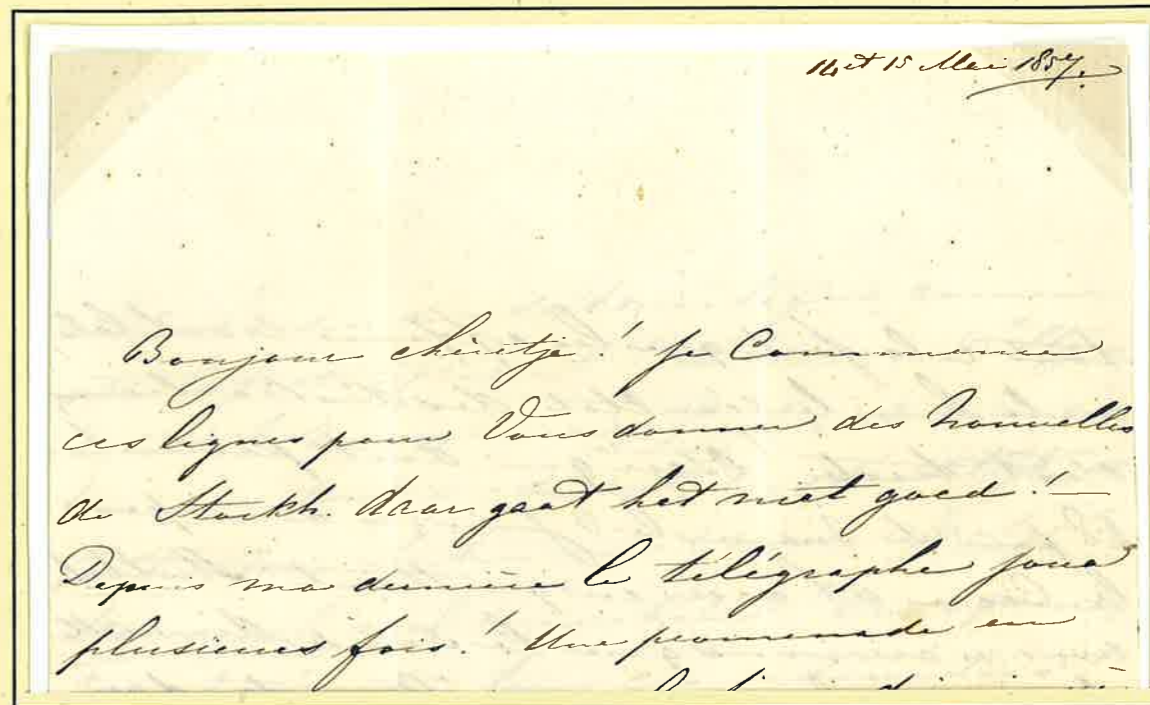 14 et 15 Mai 1857.
Bonjour chèretje! je Commence
ces lignes pour Vous donner des Nouvelles
de Stockh. daar gaat het niet goed! —
Depuis ma dernière le télégraphe joua
plusieurs fois! Une promenade en